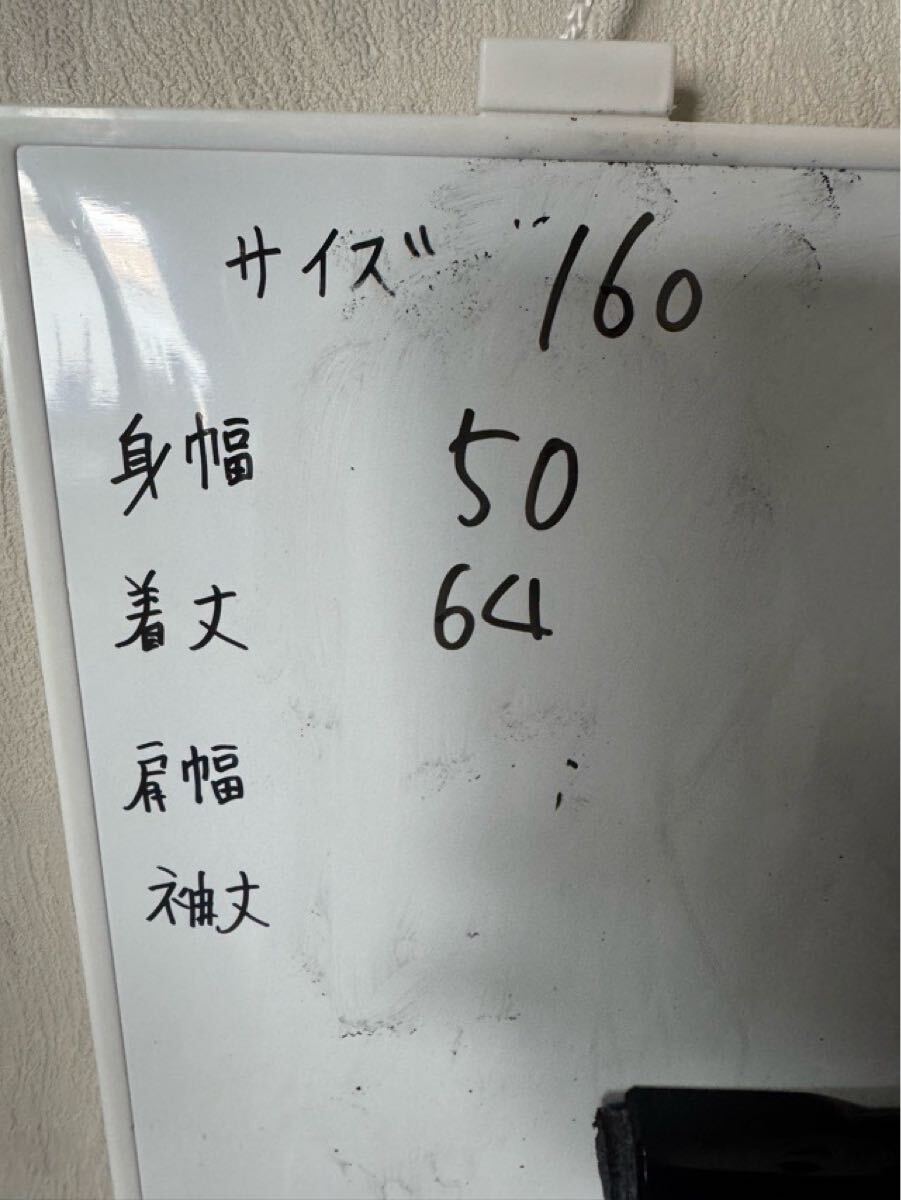 サイズ 160
身幅 50
着丈 64
肩幅
袖丈